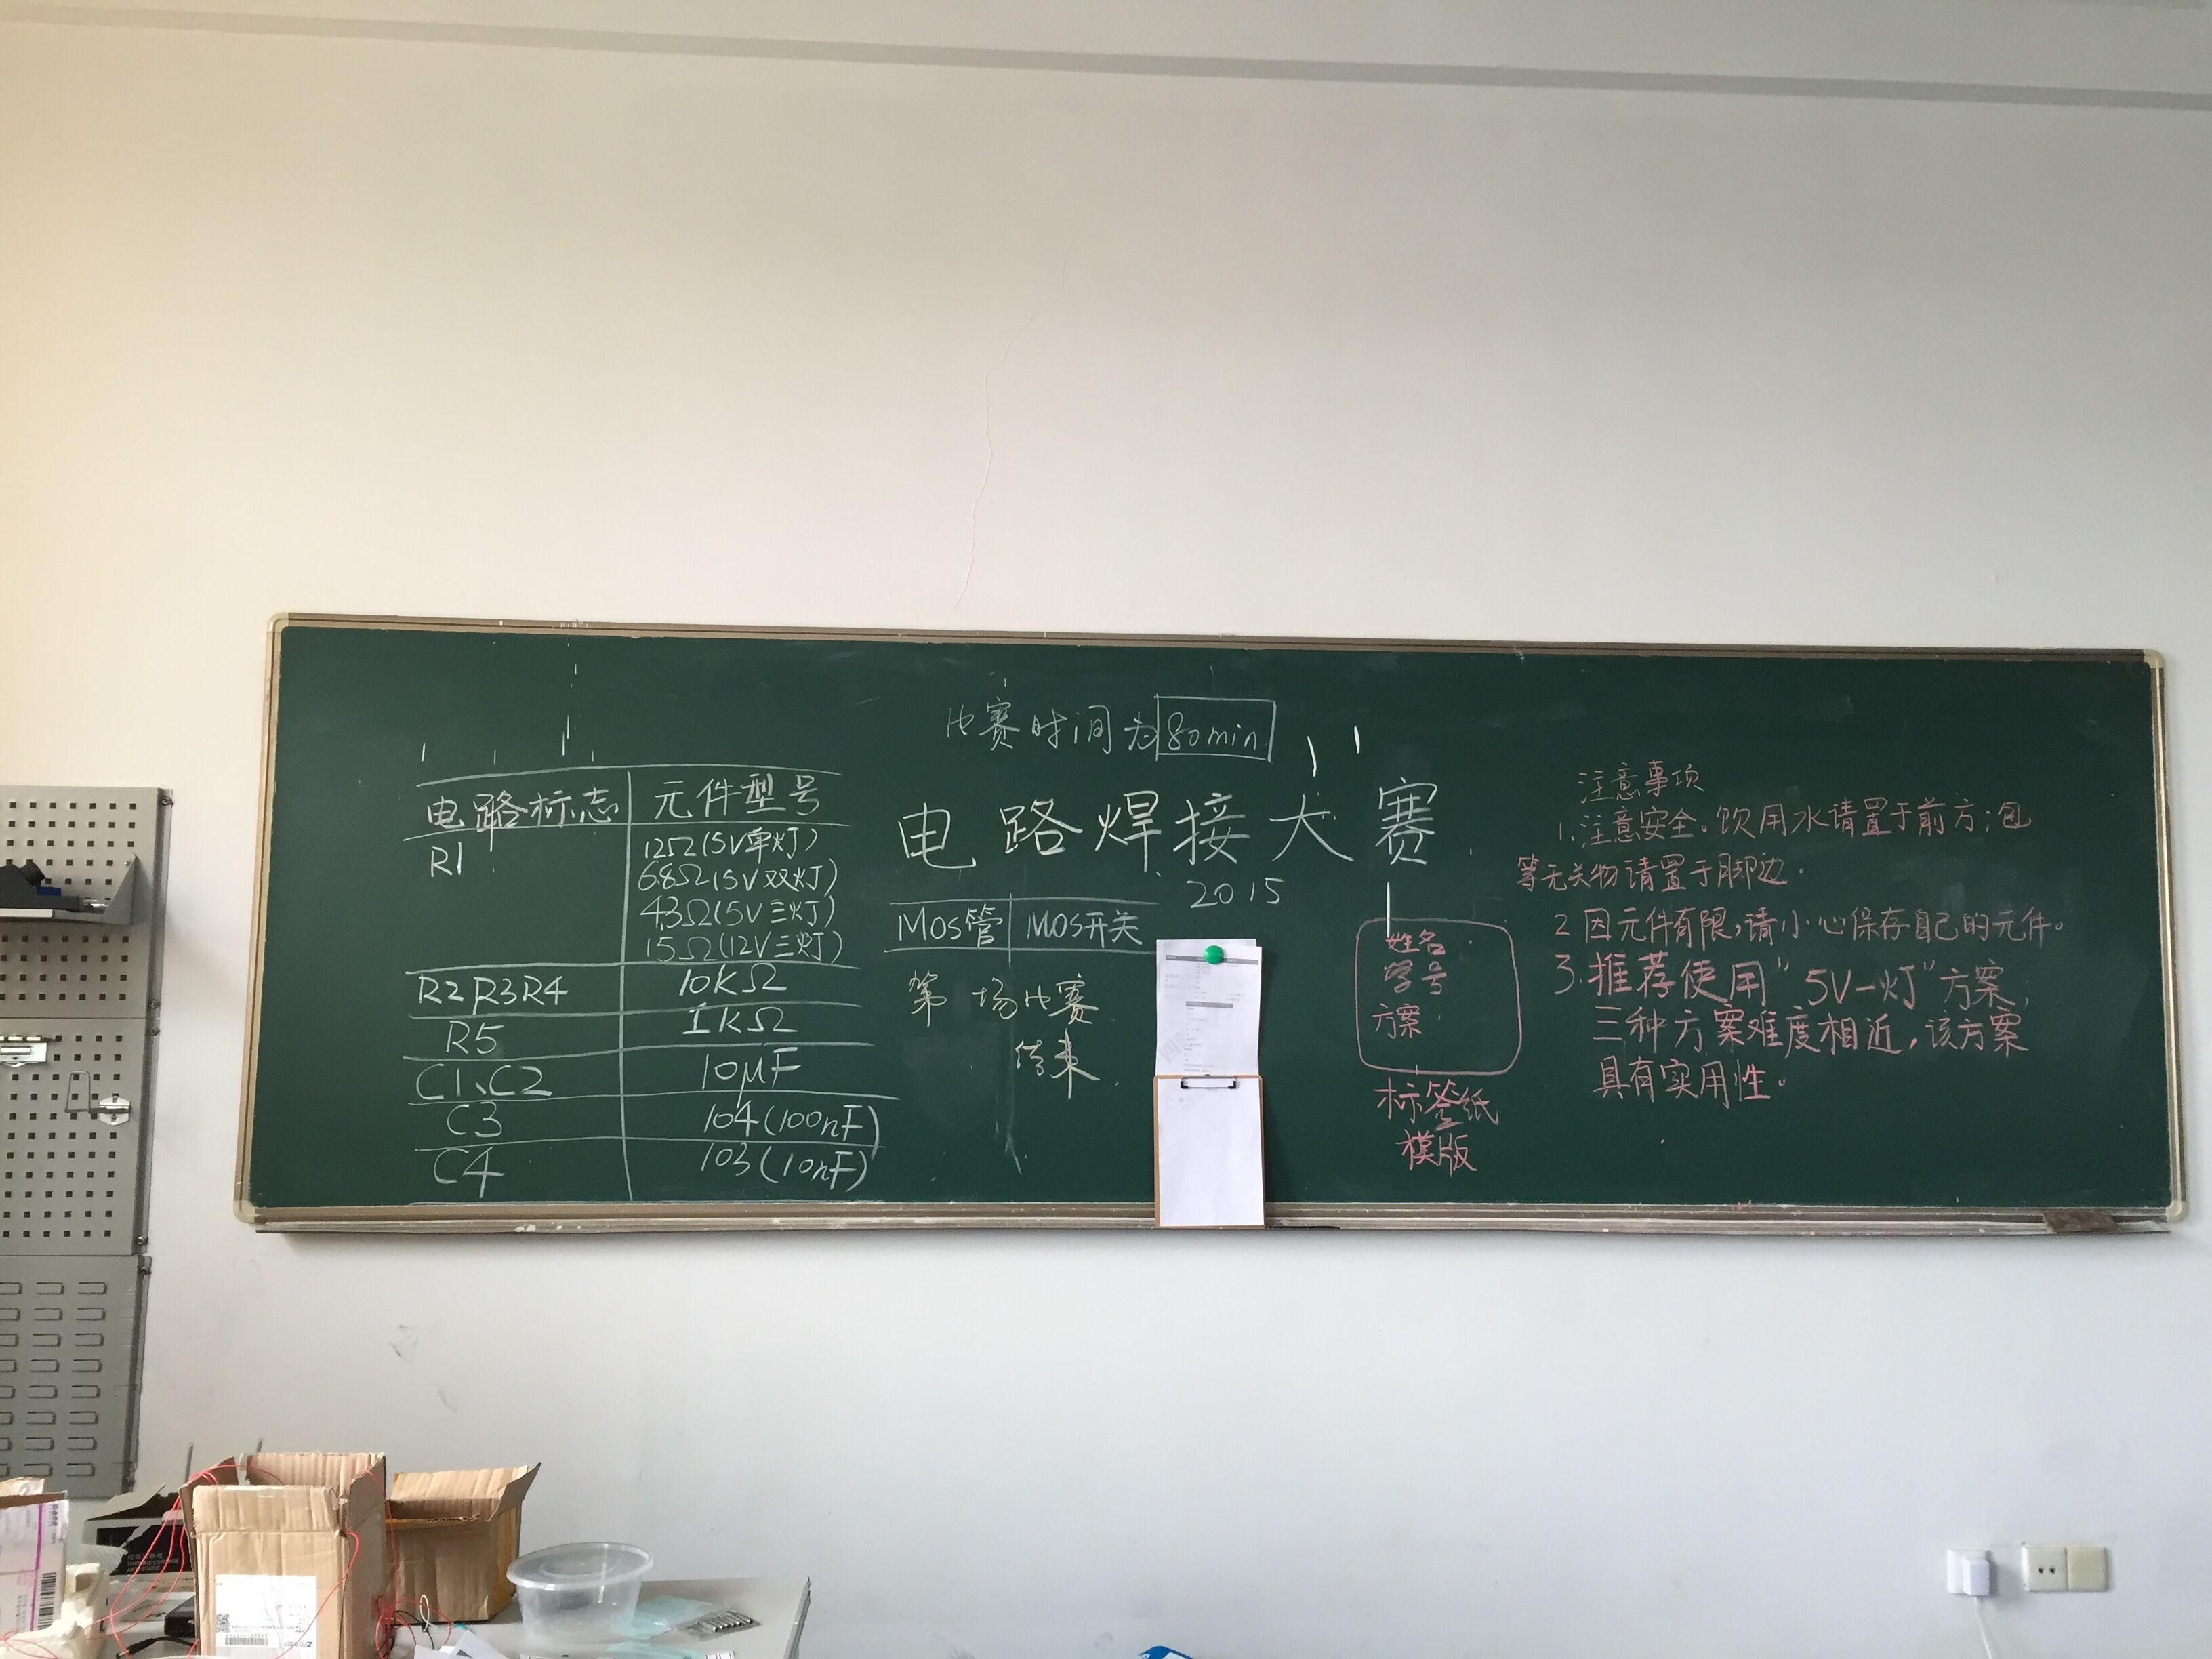 比赛时间为 80min
电路标志 元件型号
R1 12Ω(5V单灯)
68Ω(5V双灯)
43Ω(5V三灯)
15Ω(12V三灯)
R2 R3 R4 10KΩ
R5 1KΩ
C1、C2 10μF
C3 104(100nF)
C4 103(10nF)
电路焊接大赛
2015
MOS管 MOS开关
第 场比赛
结束
姓名
学号
方案
标签纸
模版
注意事项
1.注意安全。饮用水请置于前方;包
等无关物请置于脚边.
2 因元件有限,请小心保存自己的元件。
3.推荐使用"5V一灯"方案,
三种方案难度相近,该方案
具有实用性。